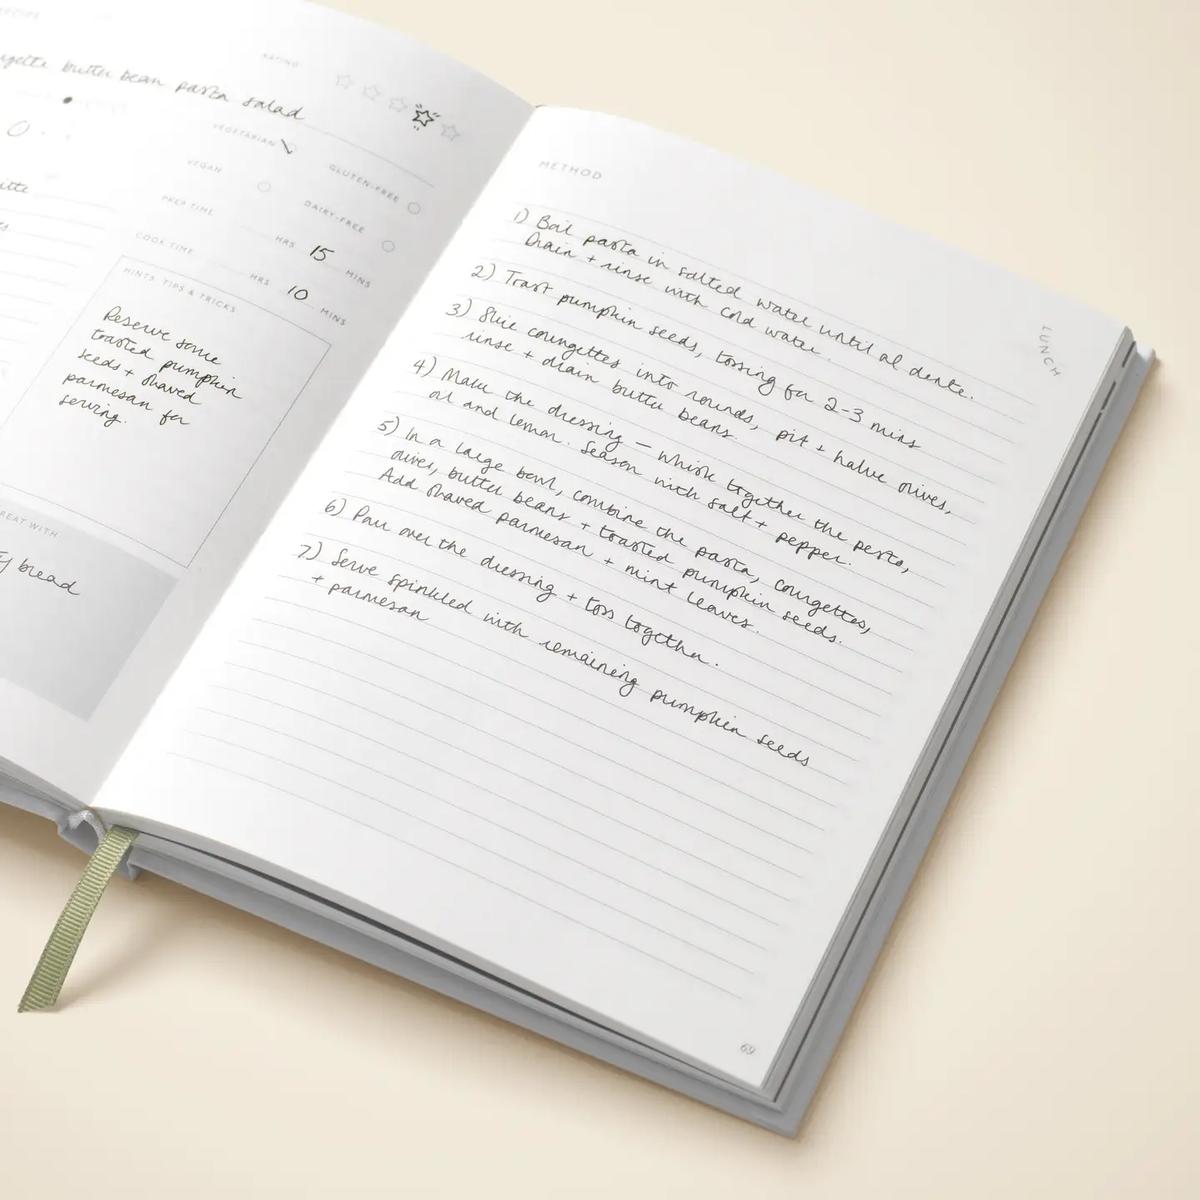 RECIPE
butter bean pasta salad
RATING
VEGETARIAN
GLUTEN-FREE
VEGAN
DAIRY-FREE
PREP TIME
HRS 15 MINS
COOK TIME
HRS 10 MINS
HINTS, TIPS & TRICKS
Reserve some
toasted pumpkin
seeds + shaved
parmesan for
serving.
REAT WITH
bread
METHOD
1) Boil pasta in salted water until al dente.
Drain + rinse with cold water.
2) Toast pumpkin seeds, tossing for 2-3 mins
3) Slice courgettes into rounds, pit + halve olives,
rinse + drain butter beans.
4) Make the dressing – whisk together the pesto,
oil and lemon. Season with salt + pepper.
5) In a large bowl, combine the pasta, courgettes,
olives, butter beans + toasted pumpkin seeds.
Add shaved parmesan + mint leaves.
6) Pour over the dressing + toss together.
7) Serve spinkled with remaining pumpkin seeds
+ parmesan
LUNCH
69